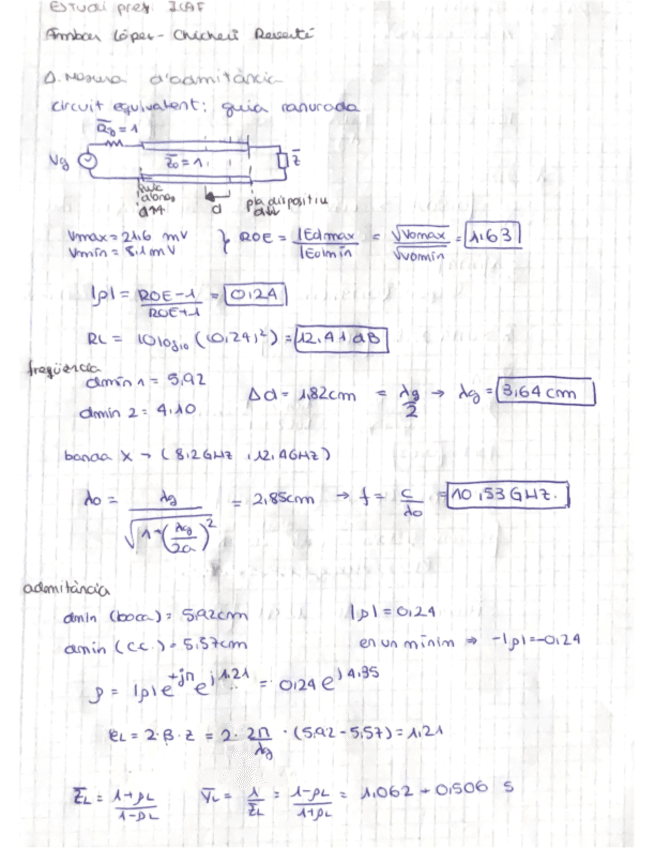 Estudi prev. ICAF
Ambar López-Chicheri Reverté
1. Mesura d'admitància
circuit equivalent: guia ranurada
R̄g = 1
Vg
Z̄o = 1
Z̄
d
pla dispositiu
Vmax = 21,6 mV
Vmín = 8,1 mV
} ROE = |Ed|max / |Ed|mín = √Vomax / √Vomin = 1.63
|ρ| = (ROE-1) / (ROE+1) = 0,24
RL = 10log10 (0,24)²) = 12,41 dB
freqüència
dmín 1 = 5,92
dmín 2 = 4,10
Δd = 1,82cm = λg / 2 → λg = 3,64 cm
banda X → (8.2GHz , 12,4GHz)
λo = λg / √(1+(λg/2a)²) = 2,85cm → f = c / λo = 10,53 GHz.
admitància
dmín (boca) = 5,92cm
|ρ| = 0,24
dmín (c.c.) = 5,57cm
en un mínim ⇒ -|ρ| = -0,24
ρ = |ρ|e^+jπ e^j1.21 = 0,24 e^j4.35
φL = 2·β·z = 2 · 2π/λg · (5,92 - 5,57) = 1,21
Z̄L = (1+ρL) / (1-ρL)
ȲL = 1 / Z̄L = (1-ρL) / (1+ρL) = 1,062 + 0,506 S